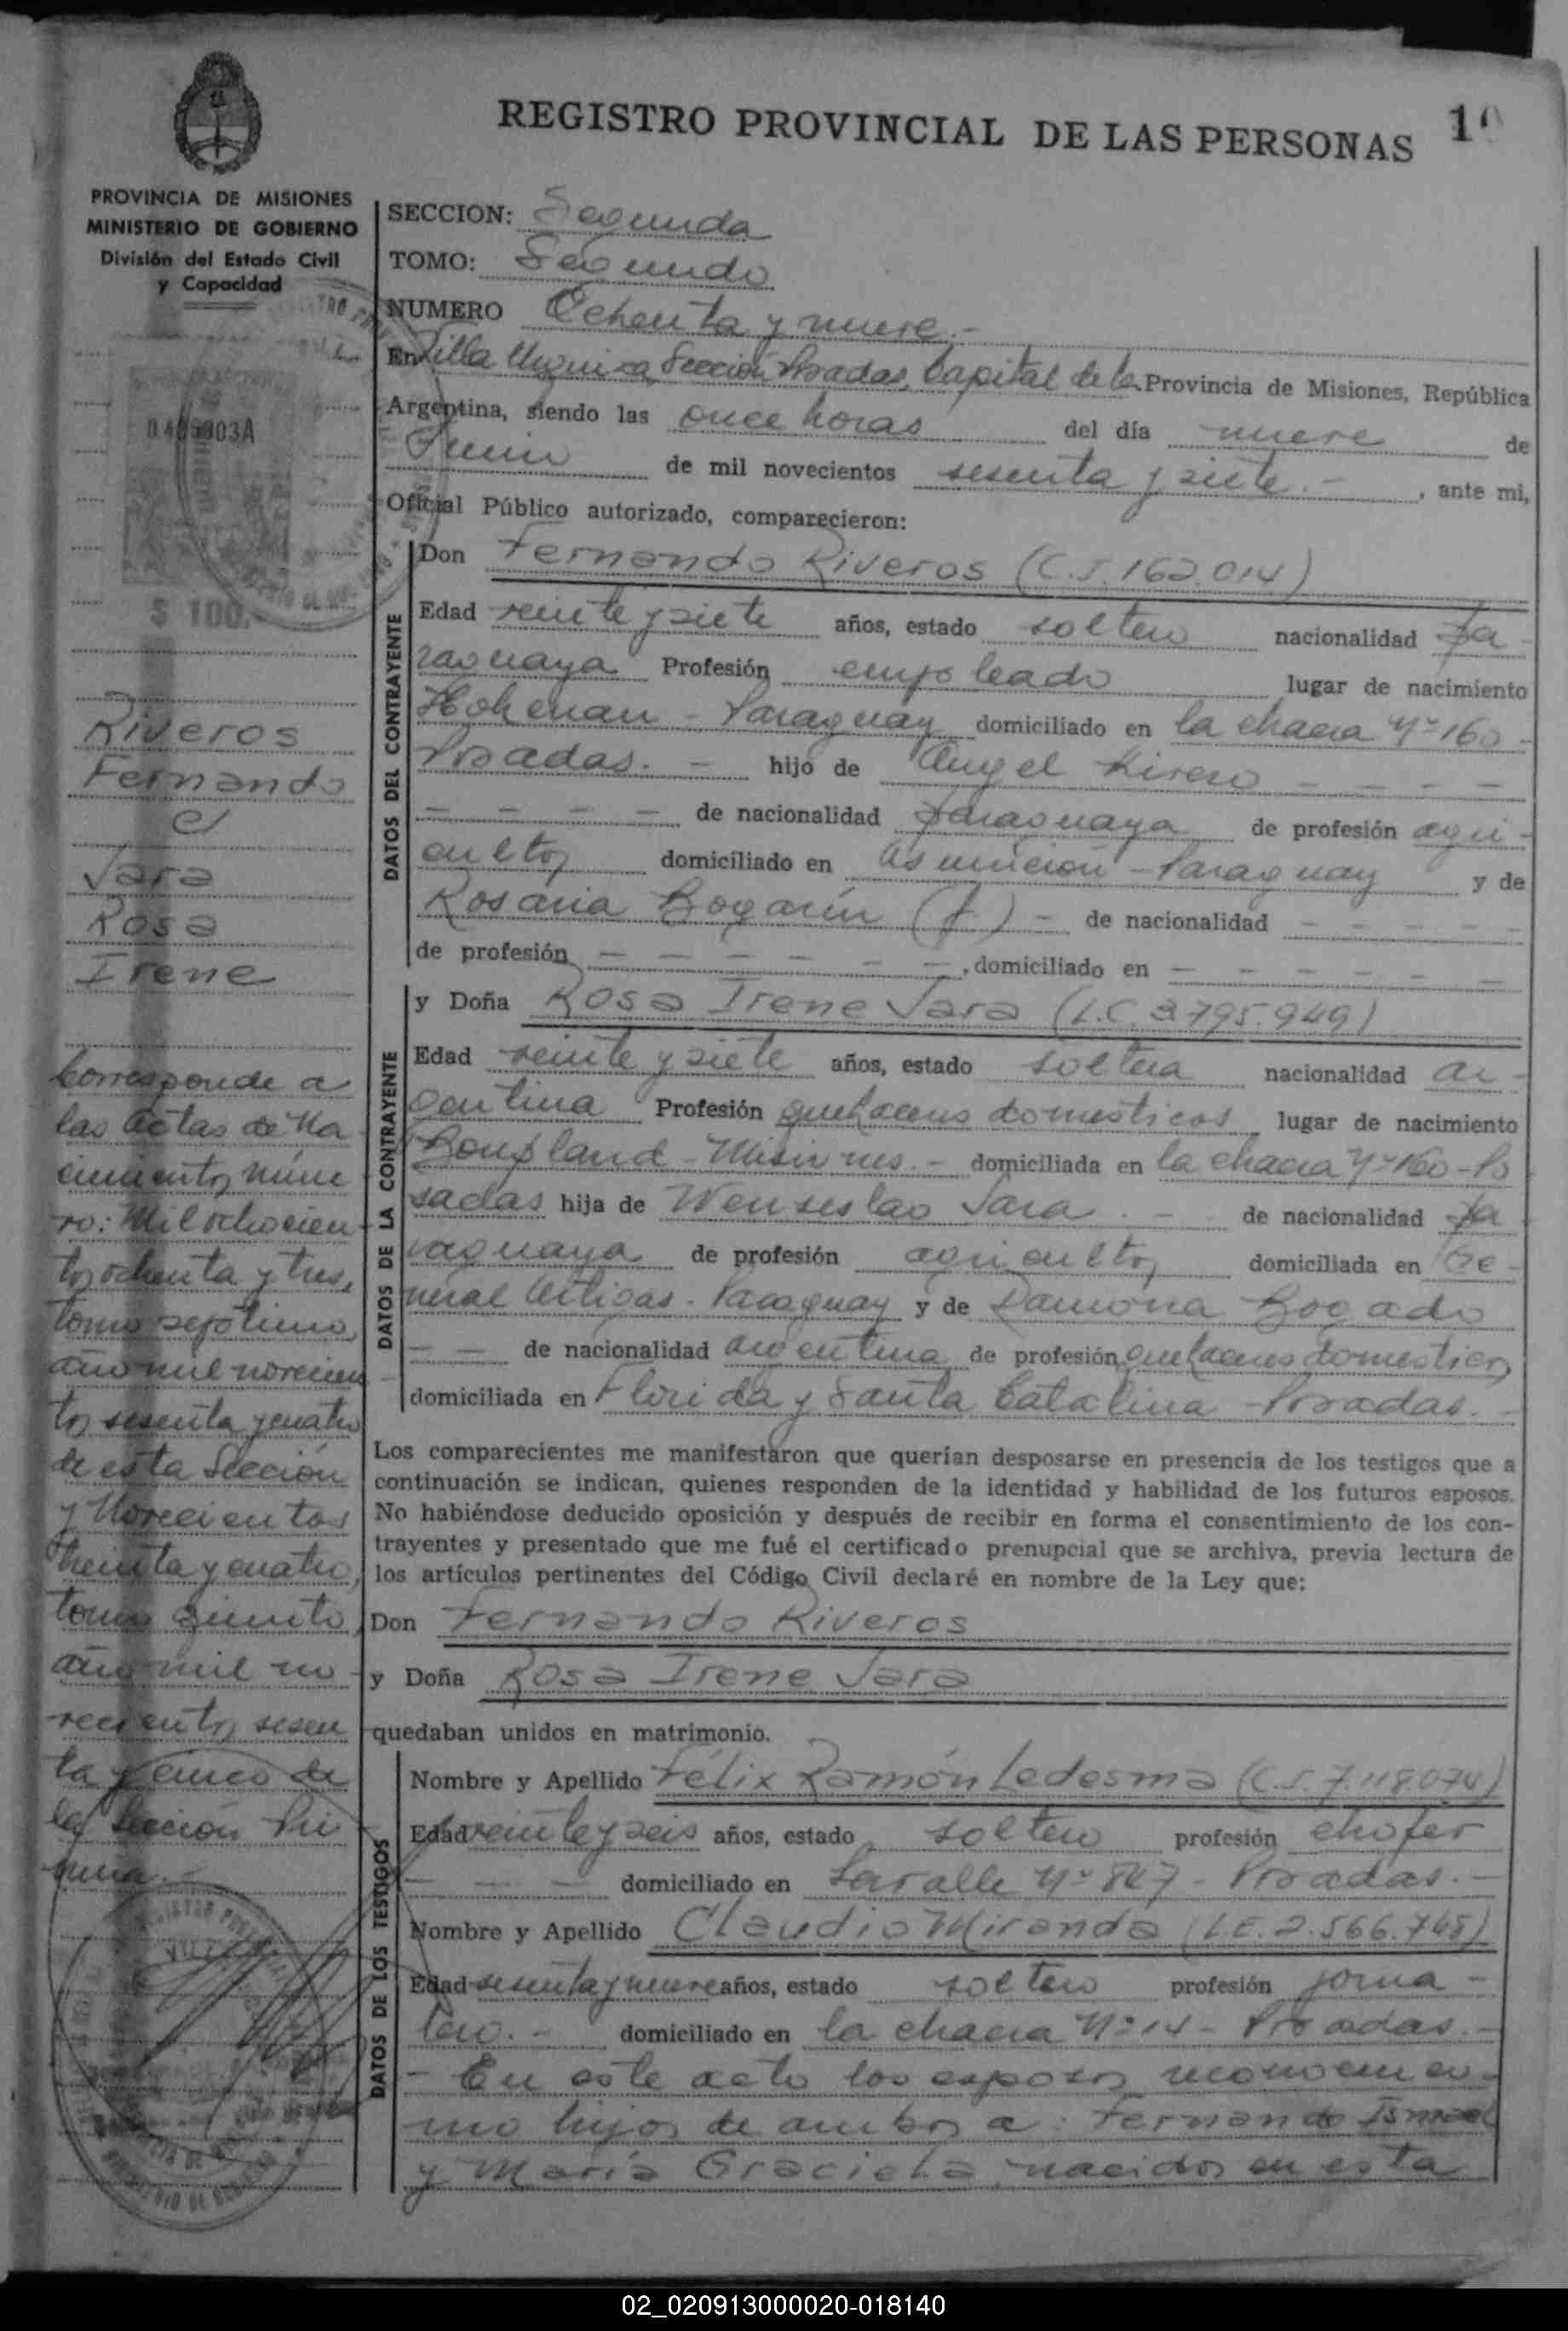 REGISTRO PROVINCIAL DE LAS PERSONAS
PROVINCIA DE MISIONES
MINISTERIO DE GOBIERNO
División del Estado Civil
y Capacidad
0465903A
$ 100.-
Riveros
Fernando
c/
Jara
Rosa
Irene
Corresponde a
las actas de Na
cimientos núme
ro: Mil ochocien
tos ochenta y tres,
tomo septimo,
año mil novecien
tos sesenta y cuatro
de esta Sección
y Novecientos
treinta y cuatro,
tomo quinto,
año mil no-
vecientos sesen
ta y cinco de
la Sección Pri
mera.-
SECCION: Segunda
TOMO: Segundo
NUMERO Ochenta y nueve.-
En Villa Urquiza Sección Posadas, Capital de la Provincia de Misiones, República
Argentina, siendo las once horas del día nueve de
Junio de mil novecientos sesenta y siete.- , ante mi,
Oficial Público autorizado, comparecieron:
DATOS DEL CONTRAYENTE
Don Fernando Riveros (C.I. 162.014)
Edad veinte y siete años, estado soltero nacionalidad Pa-
raguaya Profesión empleado lugar de nacimiento
Hohenau - Paraguay domiciliado en la chacra Nº 160-
Posadas. - hijo de Angel Rivero - - - -
- - - - de nacionalidad paraguaya de profesión agri-
cultor domiciliado en Asunción - Paraguay y de
Rosaria Bogarín (f) - de nacionalidad - - - - -
de profesión - - - - - - , domiciliado en - - - - - -
DATOS DE LA CONTRAYENTE
y Doña Rosa Irene Jara (L.C. 3.795.949)
Edad veinte y siete años, estado soltera nacionalidad ar-
gentina Profesión quehaceres domesticos lugar de nacimiento
Bonpland - Misiones.- domiciliada en la chacra Nº 160 - Po
sadas hija de Wenseslao Jara.- - de nacionalidad pa
raguaya de profesión agricultor domiciliada en Ge-
neral Artigas - Paraguay y de Ramona Bogado
- - de nacionalidad argentina de profesión quehaceres domesticos
domiciliada en Florida y Santa Catalina - Posadas.-
Los comparecientes me manifestaron que querían desposarse en presencia de los testigos que a
continuación se indican, quienes responden de la identidad y habilidad de los futuros esposos.
No habiéndose deducido oposición y después de recibir en forma el consentimiento de los con-
trayentes y presentado que me fué el certificado prenupcial que se archiva, previa lectura de
los artículos pertinentes del Código Civil declaré en nombre de la Ley que:
Don Fernando Riveros
y Doña Rosa Irene Jara
quedaban unidos en matrimonio.
DATOS DE LOS TESTIGOS
Nombre y Apellido Félix Ramón Ledesma (C.I. 7.118.074)
Edad veinte y seis años, estado soltero profesión chofer
- - - domiciliado en Lavalle Nº 847 - Posadas.-
Nombre y Apellido Claudio Miranda (L.E. 2.566.768)
Edad sesenta y nueve años, estado soltero profesión jorna-
lero.- domiciliado en la chacra Nº 14 - Posadas.-
- En este acto los esposos reconocen co-
mo hijos de ambos a: Fernando Ismael
y María Graciela, nacidos en esta
02_020913000020-018140